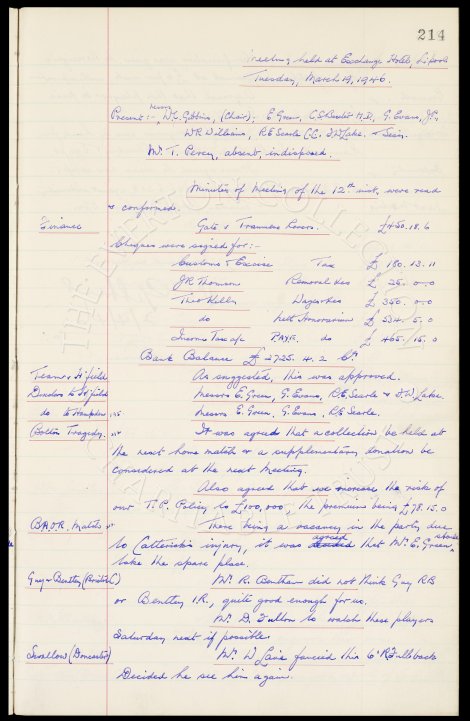 214
Meeting held at Exchange Hotel, L'pool
Tuesday, March 19, 1946.
Present :- Messrs W.C. Gibbins, (Chair); E. Green, C.S. Baxter M.D., G. Evans, J.P.,
W.R. Williams, R.E. Searle C.C. F.W. Lake. & Sec.
Mr. T. Percy, absent, indisposed.
Minutes of Meeting of the 12th inst. were read
& confirmed.
Finance Gate v Tranmere Rovers. £450.18.6
Cheques were signed for:-
Customs & Excise Tax £ 180.13.11
J.R. Thomson Removal Exs £ 25.0.0
Theo Kelly Wages &c £ 350.0.0
do nett Honorarium £ 534.5.0
Income Tax a/c PAYE. do £ 465.15.0
Bank Balance £ 2725.4.2
Team v H'field As suggested, this was approved.
Directors to H'field Messrs E. Green, G. Evans, R.E. Searle & F.W. Lake.
do to Messrs E. Green, G. Evans, R.E. Searle.
Bolton Tragedy. It was agreed that a collection be held at
the next home match & a supplementary donation be
considered at the next meeting.
Also agreed that we increase the risks of
our T.P. Policy to £100,000, the premium being £78.15.0
B.A.O.R. Match There being a vacancy in the party due
to Catterick's injury, it was agreed that Mr. E. Green should
take the spare place.
Guy & Bentley (Bristol C) Mr. R. Bentham did not think Guy R.B
or Bentley I.R., quite good enough for us.
Mr. D. Fulton to watch these players
Saturday next if possible.
Swallow (Doncaster) Mr. W Laine fancied this 6' R. Fullback
Decided he see him again.
THE EVERTON COLLECTION